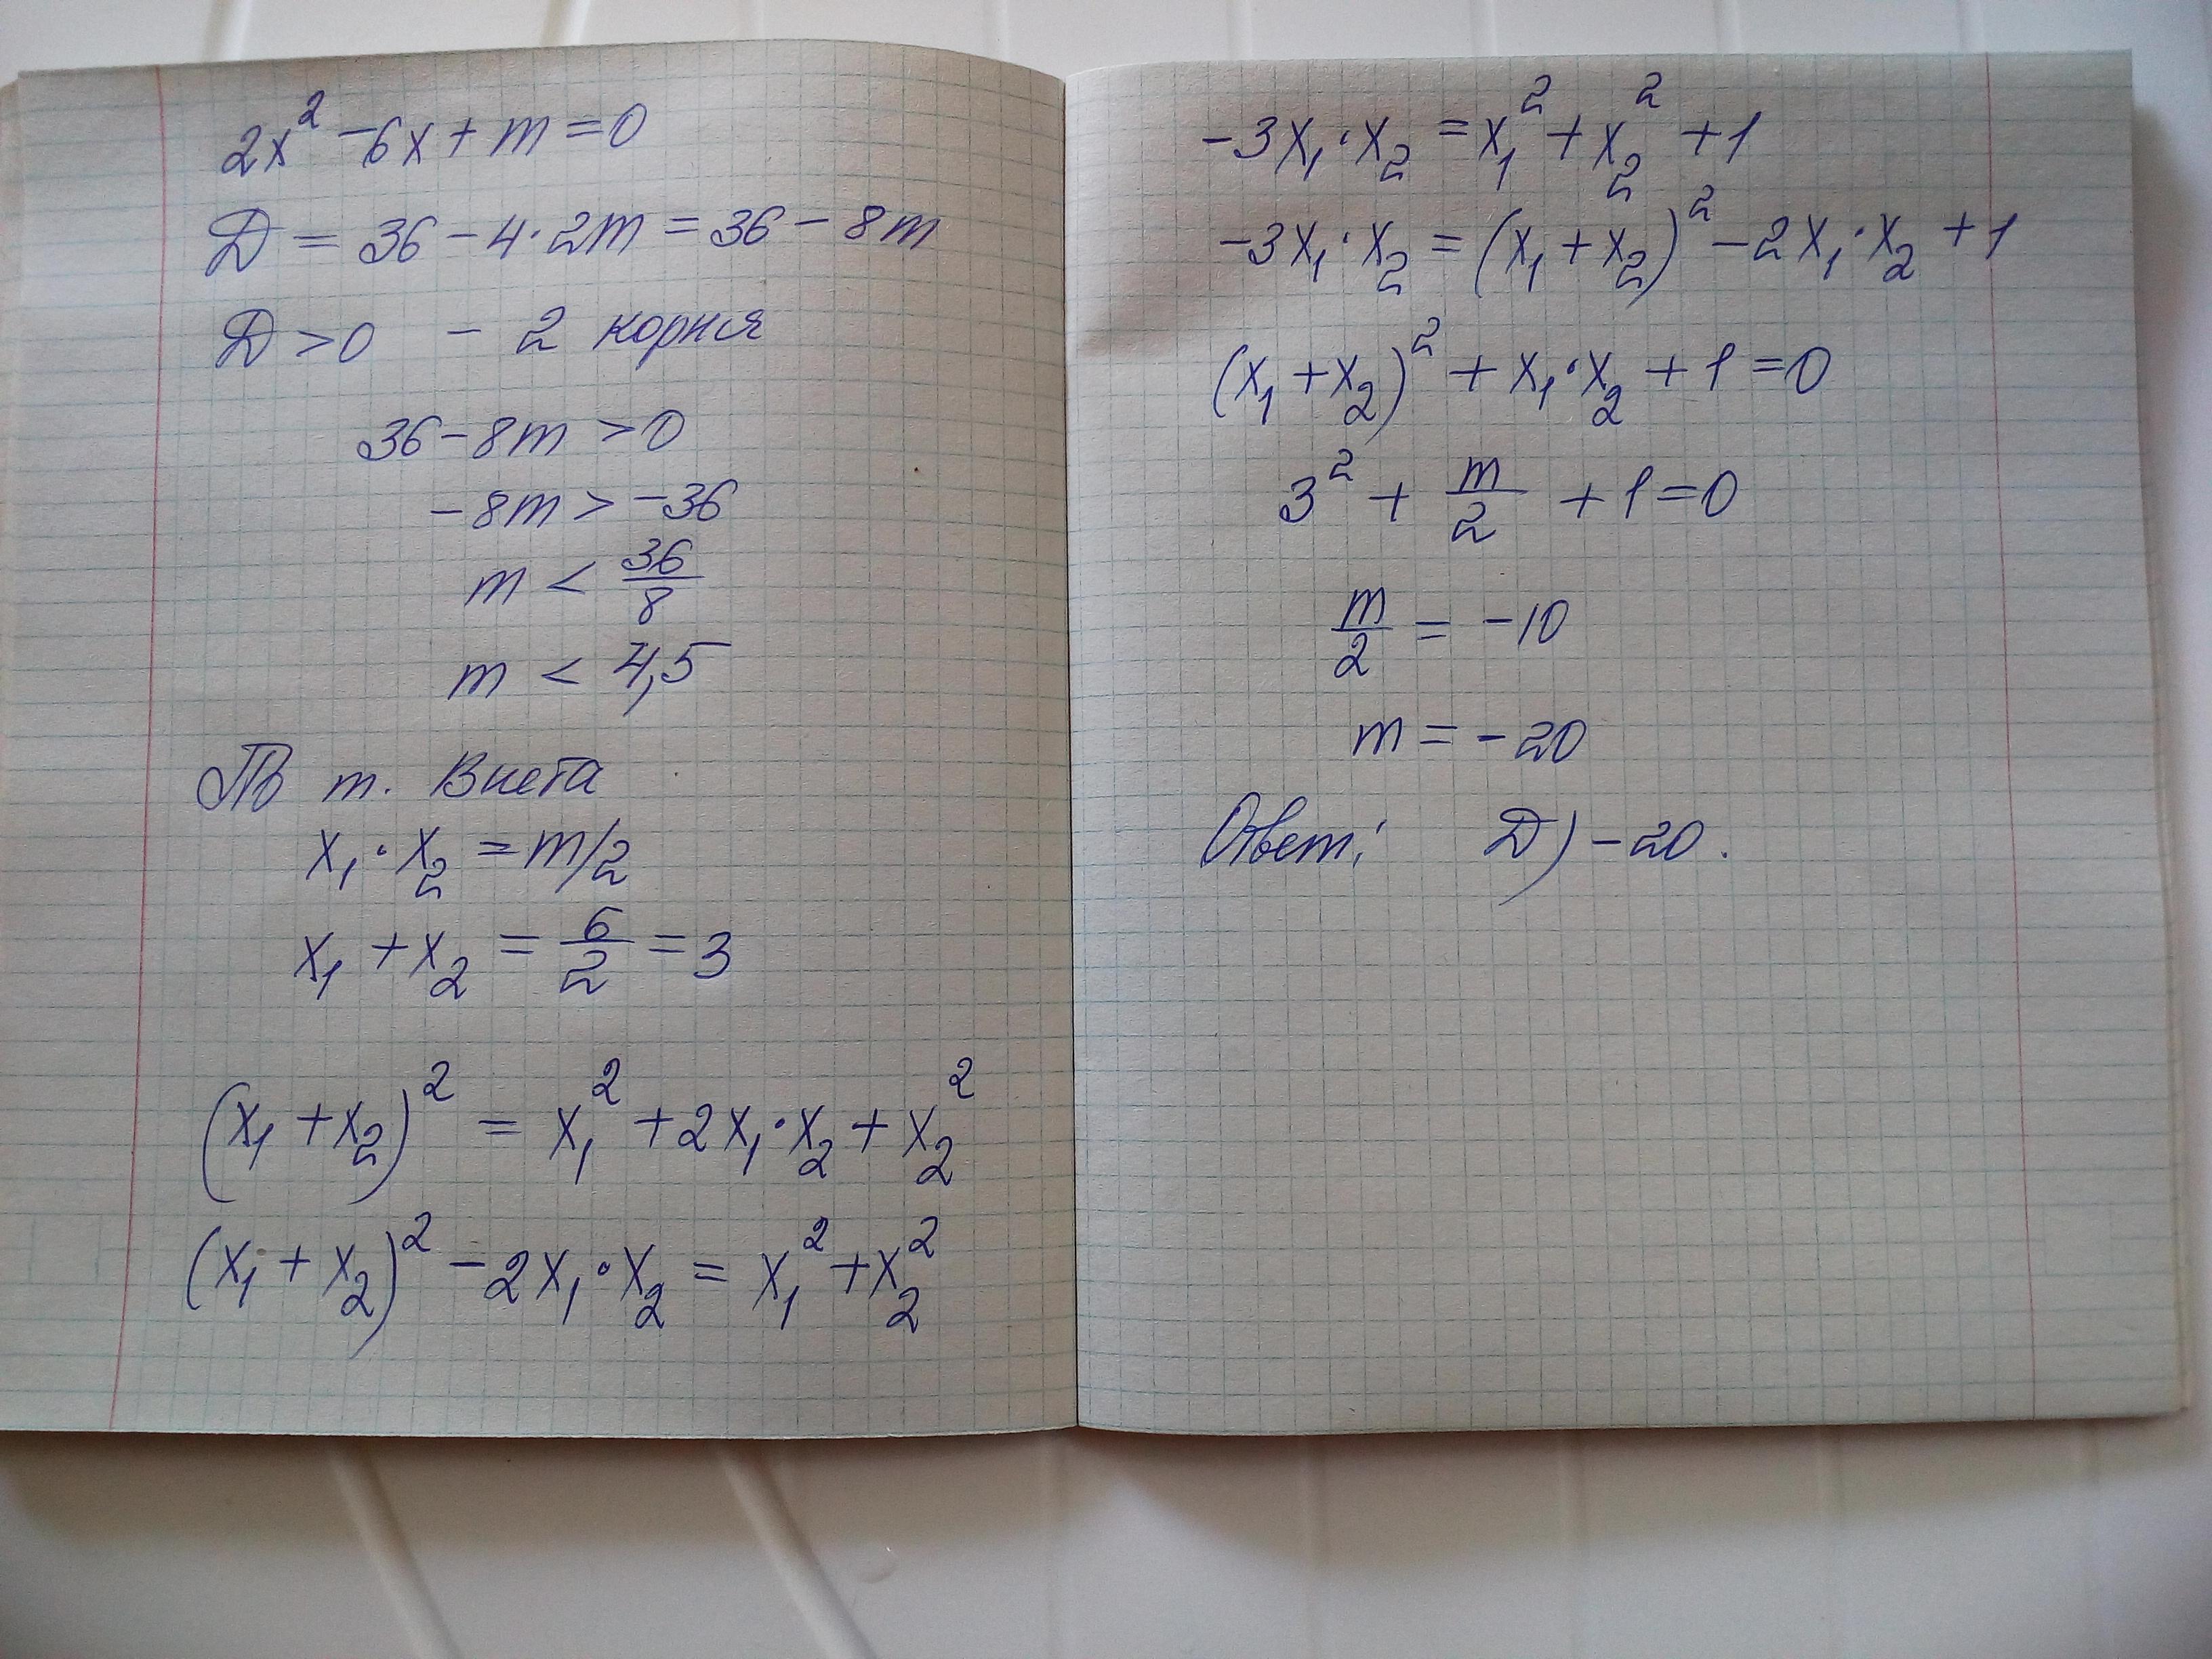 2x² - 6x + m = 0
D = 36 - 4·2m = 36 - 8m
D > 0 - 2 корня
36 - 8m > 0
-8m > -36
m < 36/8
m < 4,5
По т. Виета
x₁·x₂ = m/2
x₁ + x₂ = 6/2 = 3
(x₁ + x₂)² = x₁² + 2x₁·x₂ + x₂²
(x₁ + x₂)² - 2x₁·x₂ = x₁² + x₂²
-3x₁·x₂ = x₁² + x₂² + 1
-3x₁·x₂ = (x₁ + x₂)² - 2x₁·x₂ + 1
(x₁ + x₂)² + x₁·x₂ + 1 = 0
3² + m/2 + 1 = 0
m/2 = -10
m = -20
Ответ: D) -20.